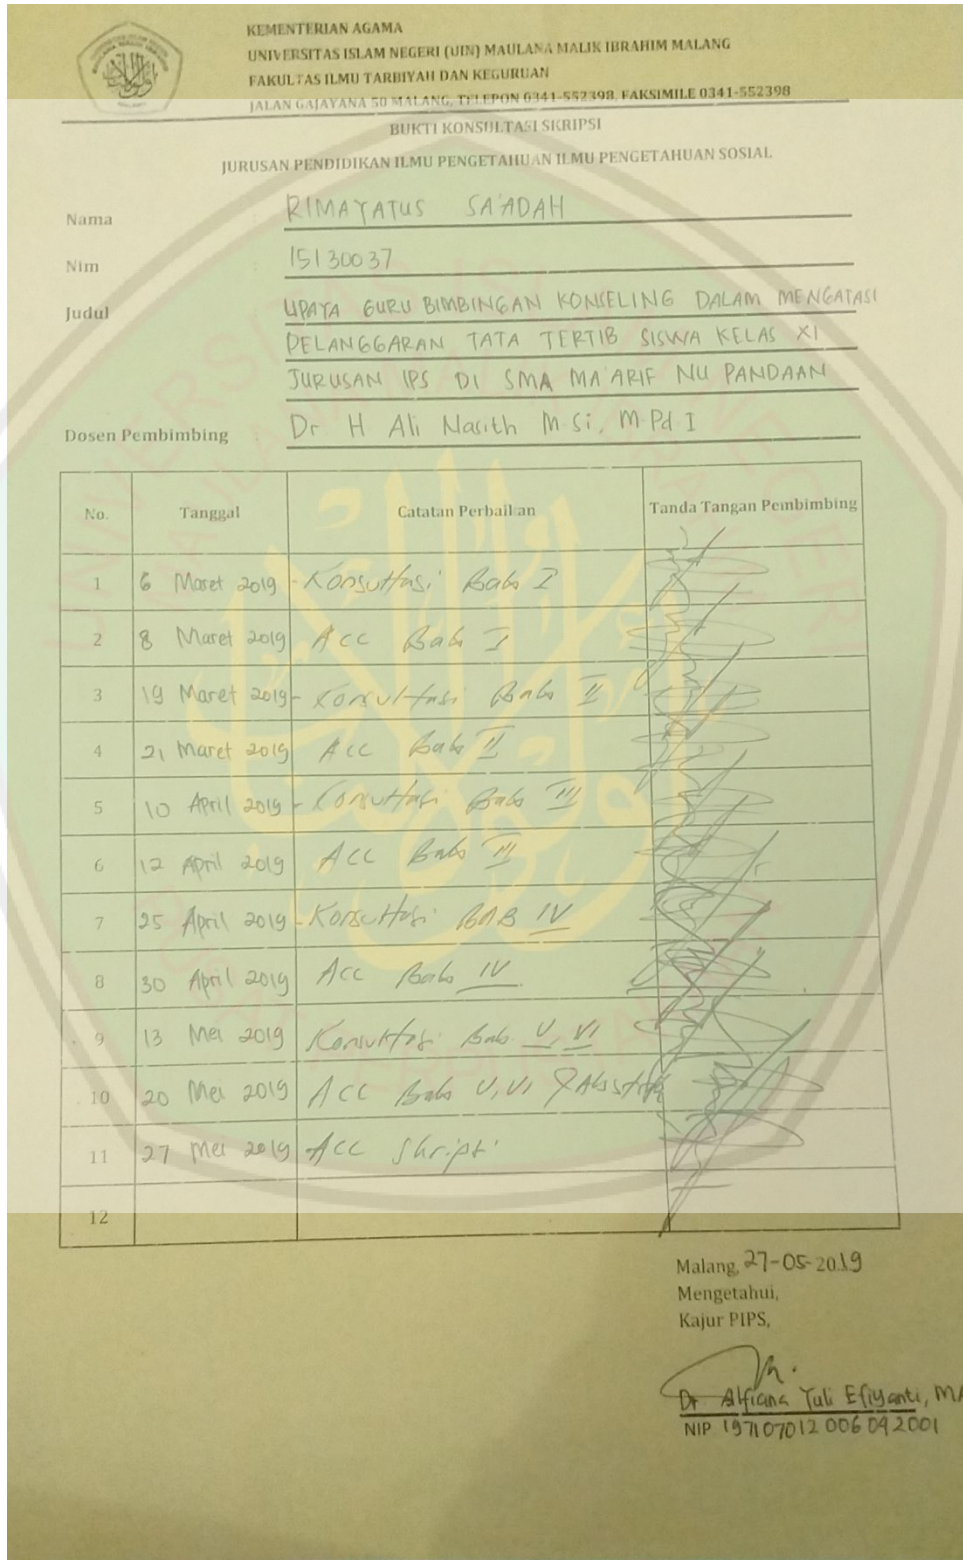 KEMENTERIAN AGAMA
UNIVERSITAS ISLAM NEGERI (UIN) MAULANA MALIK IBRAHIM MALANG
FAKULTAS ILMU TARBIYAH DAN KEGURUAN
JALAN GAJAYANA 50 MALANG, TELEPON 0341-552398, FAKSIMILE 0341-552398
BUKTI KONSULTASI SKRIPSI
JURUSAN PENDIDIKAN ILMU PENGETAHUAN ILMU PENGETAHUAN SOSIAL
Nama RIMAYATUS SA'ADAH
Nim 15130037
Judul UPAYA GURU BIMBINGAN KONSELING DALAM MENGATASI
PELANGGARAN TATA TERTIB SISWA KELAS XI
JURUSAN IPS DI SMA MA'ARIF NU PANDAAN
Dosen Pembimbing : Dr H Ali Nasith M.Si, M.Pd I
No. Tanggal Catatan Perbaikan Tanda Tangan Pembimbing
1 6 Maret 2019 - Konsultasi Bab I
2 8 Maret 2019 ACC Bab I
3 19 Maret 2019 - Konsultasi Bab II
4 21 Maret 2019 ACC Bab II
5 10 April 2019 - Konsultasi Bab III
6 12 April 2019 ACC Bab III
7 25 April 2019 - Konsultasi BAB IV
8 30 April 2019 ACC Bab IV
9 13 Mei 2019 Konsultasi Bab V, VI
10 20 Mei 2019 ACC Bab V, VI & Abstrak
11 27 Mei 2019 ACC Skripsi
12
Malang, 27-05-2019
Mengetahui,
Kajur PIPS,
Dr Alfiana Yuli Efiyanti, MA
NIP 197107012006042001